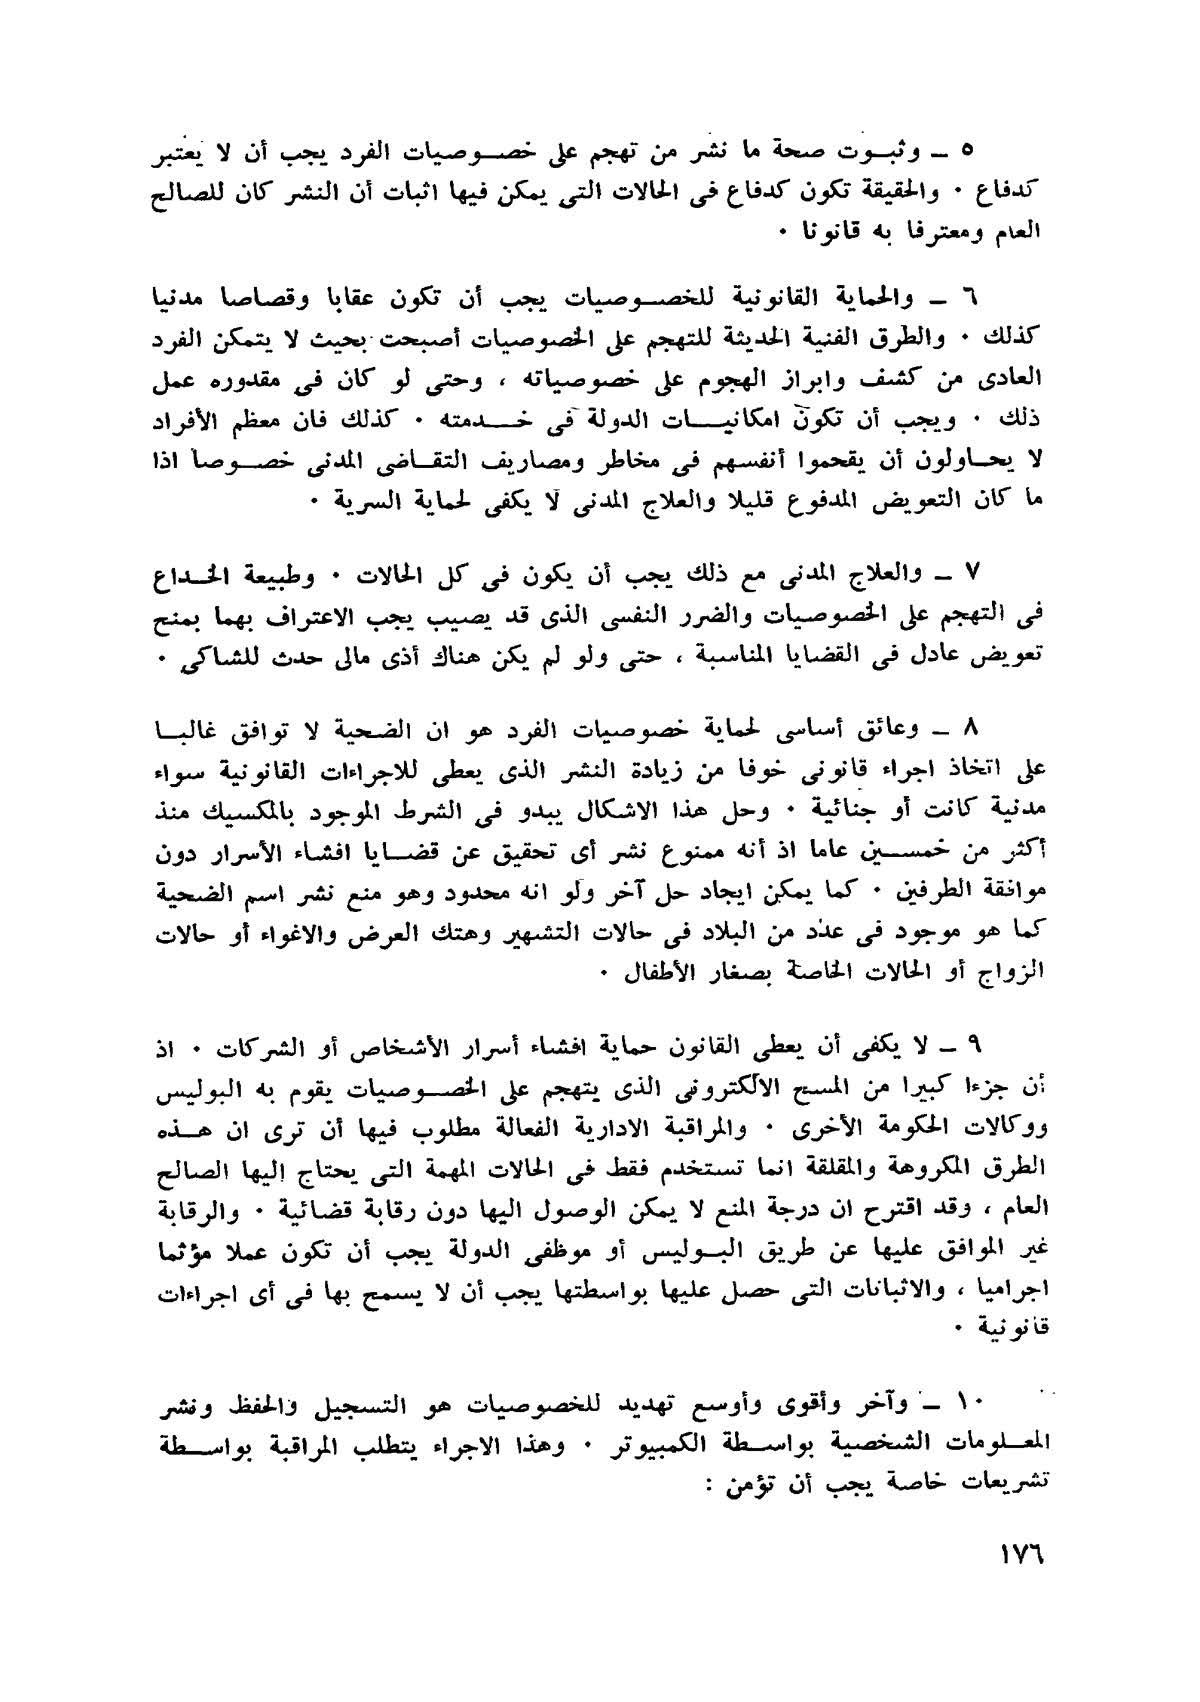 ٥ ــ وثبوت صحة ما نشر من تهجم على خصوصيات الفرد يجب أن لا يعتبر
كدفاع ٠ والحقيقة تكون كدفاع فى الحالات التى يمكن فيها اثبات أن النشر كان للصالح
العام ومعترفا به قانونا ٠
٦ ــ والحماية القانونية للخصوصيات يجب أن تكون عقابا وقصاصا مدنيا
كذلك ٠ والطرق الفنية الحديثة للتهجم على الخصوصيات أصبحت بحيث لا يتمكن الفرد
العادى من كشف وابراز الهجوم على خصوصياته ، وحتى لو كان فى مقدوره عمل
ذلك ٠ ويجب أن تكون امكانيات الدولة فى خدمته ٠ كذلك فان معظم الأفراد
لا يحاولون أن يقحموا أنفسهم فى مخاطر ومصاريف التقاضى المدنى خصوصا اذا
ما كان التعويض المدفوع قليلا والعلاج المدنى لا يكفى لحماية السرية ٠
٧ ــ والعلاج المدنى مع ذلك يجب أن يكون فى كل الحالات ٠ وطبيعة الخداع
فى التهجم على الخصوصيات والضرر النفسى الذى قد يصيب يجب الاعتراف بهما بمنح
تعويض عادل فى القضايا المناسبة ، حتى ولو لم يكن هناك أذى مالى حدث للشاكى ٠
٨ ــ وعائق أساسى لحماية خصوصيات الفرد هو ان الضحية لا توافق غالبا
على اتخاذ اجراء قانونى خوفا من زيادة النشر الذى يعطى للاجراءات القانونية سواء
مدنية كانت أو جنائية ٠ وحل هذا الاشكال يبدو فى الشرط الموجود بالمكسيك منذ
أكثر من خمسين عاما اذ أنه ممنوع نشر أى تحقيق عن قضايا افشاء الأسرار دون
موافقة الطرفين ٠ كما يمكن ايجاد حل آخر ولو انه محدود وهو منع نشر اسم الضحية
كما هو موجود فى عدد من البلاد فى حالات التشهير وهتك العرض والاغواء أو حالات
الزواج أو الحالات الخاصة بصغار الأطفال ٠
٩ ــ لا يكفى أن يعطى القانون حماية افشاء أسرار الأشخاص أو الشركات ٠ اذ
أن جزءا كبيرا من المسح الالكترونى الذى يتهجم على الخصوصيات يقوم به البوليس
ووكالات الحكومة الأخرى ٠ والمراقبة الادارية الفعالة مطلوب فيها أن ترى ان هذه
الطرق المكروهة والمقلقة انما تستخدم فقط فى الحالات المهمة التى يحتاج إليها الصالح
العام ، وقد اقترح ان درجة المنع لا يمكن الوصول اليها دون رقابة قضائية ٠ والرقابة
غير الموافق عليها عن طريق البوليس أو موظفى الدولة يجب أن تكون عملا مؤثما
اجراميا ، والاثباتات التى حصل عليها بواسطتها يجب أن لا يسمح بها فى أى اجراءات
قانونية ٠
١٠ ــ وآخر وأقوى وأوسع تهديد للخصوصيات هو التسجيل والحفظ ونشر
المعلومات الشخصية بواسطة الكمبيوتر ٠ وهذا الاجراء يتطلب المراقبة بواسطة
تشريعات خاصة يجب أن تؤمن :
١٧٦